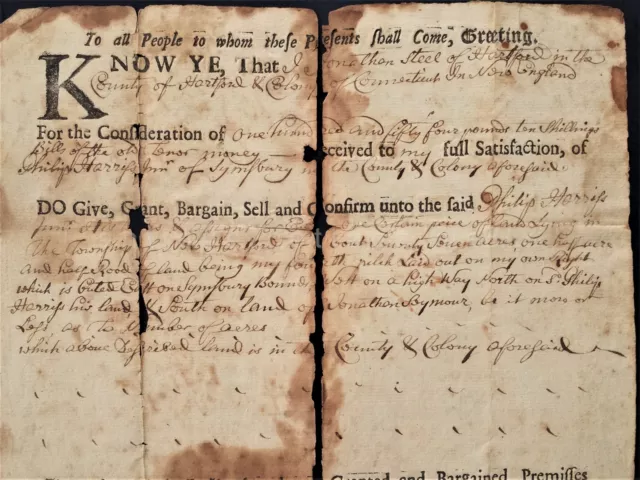 To all People to whom these Presents shall Come, Greeting.
KNOW YE, That I Jonathan Steel of Hartford in the
County of Hartford & Colony of Connecticut In New England
For the Consideration of one hundred and fifty four pounds ten Shillings
Bills of the old tenor money Received to my full Satisfaction, of
Philip Harriss of Symsbury in the County & Colony aforesaid
DO Give, Grant, Bargain, Sell and Confirm unto the said Philip Harriss
one Certain piece of Land Lying in
The Township of New Hartford of about Twenty Seven acres one half acre
and half Rood of land being my fourth pitch Laid out on my own Right
which is buted East on Symsbury Bounds, on a high Way North on Sd Philip
Harriss his land & South on land of Jonathan Seymour, be it more or
Less as to Number of acres
which above Described land is in the County & Colony aforesaid
Granted and Bargained Premisses